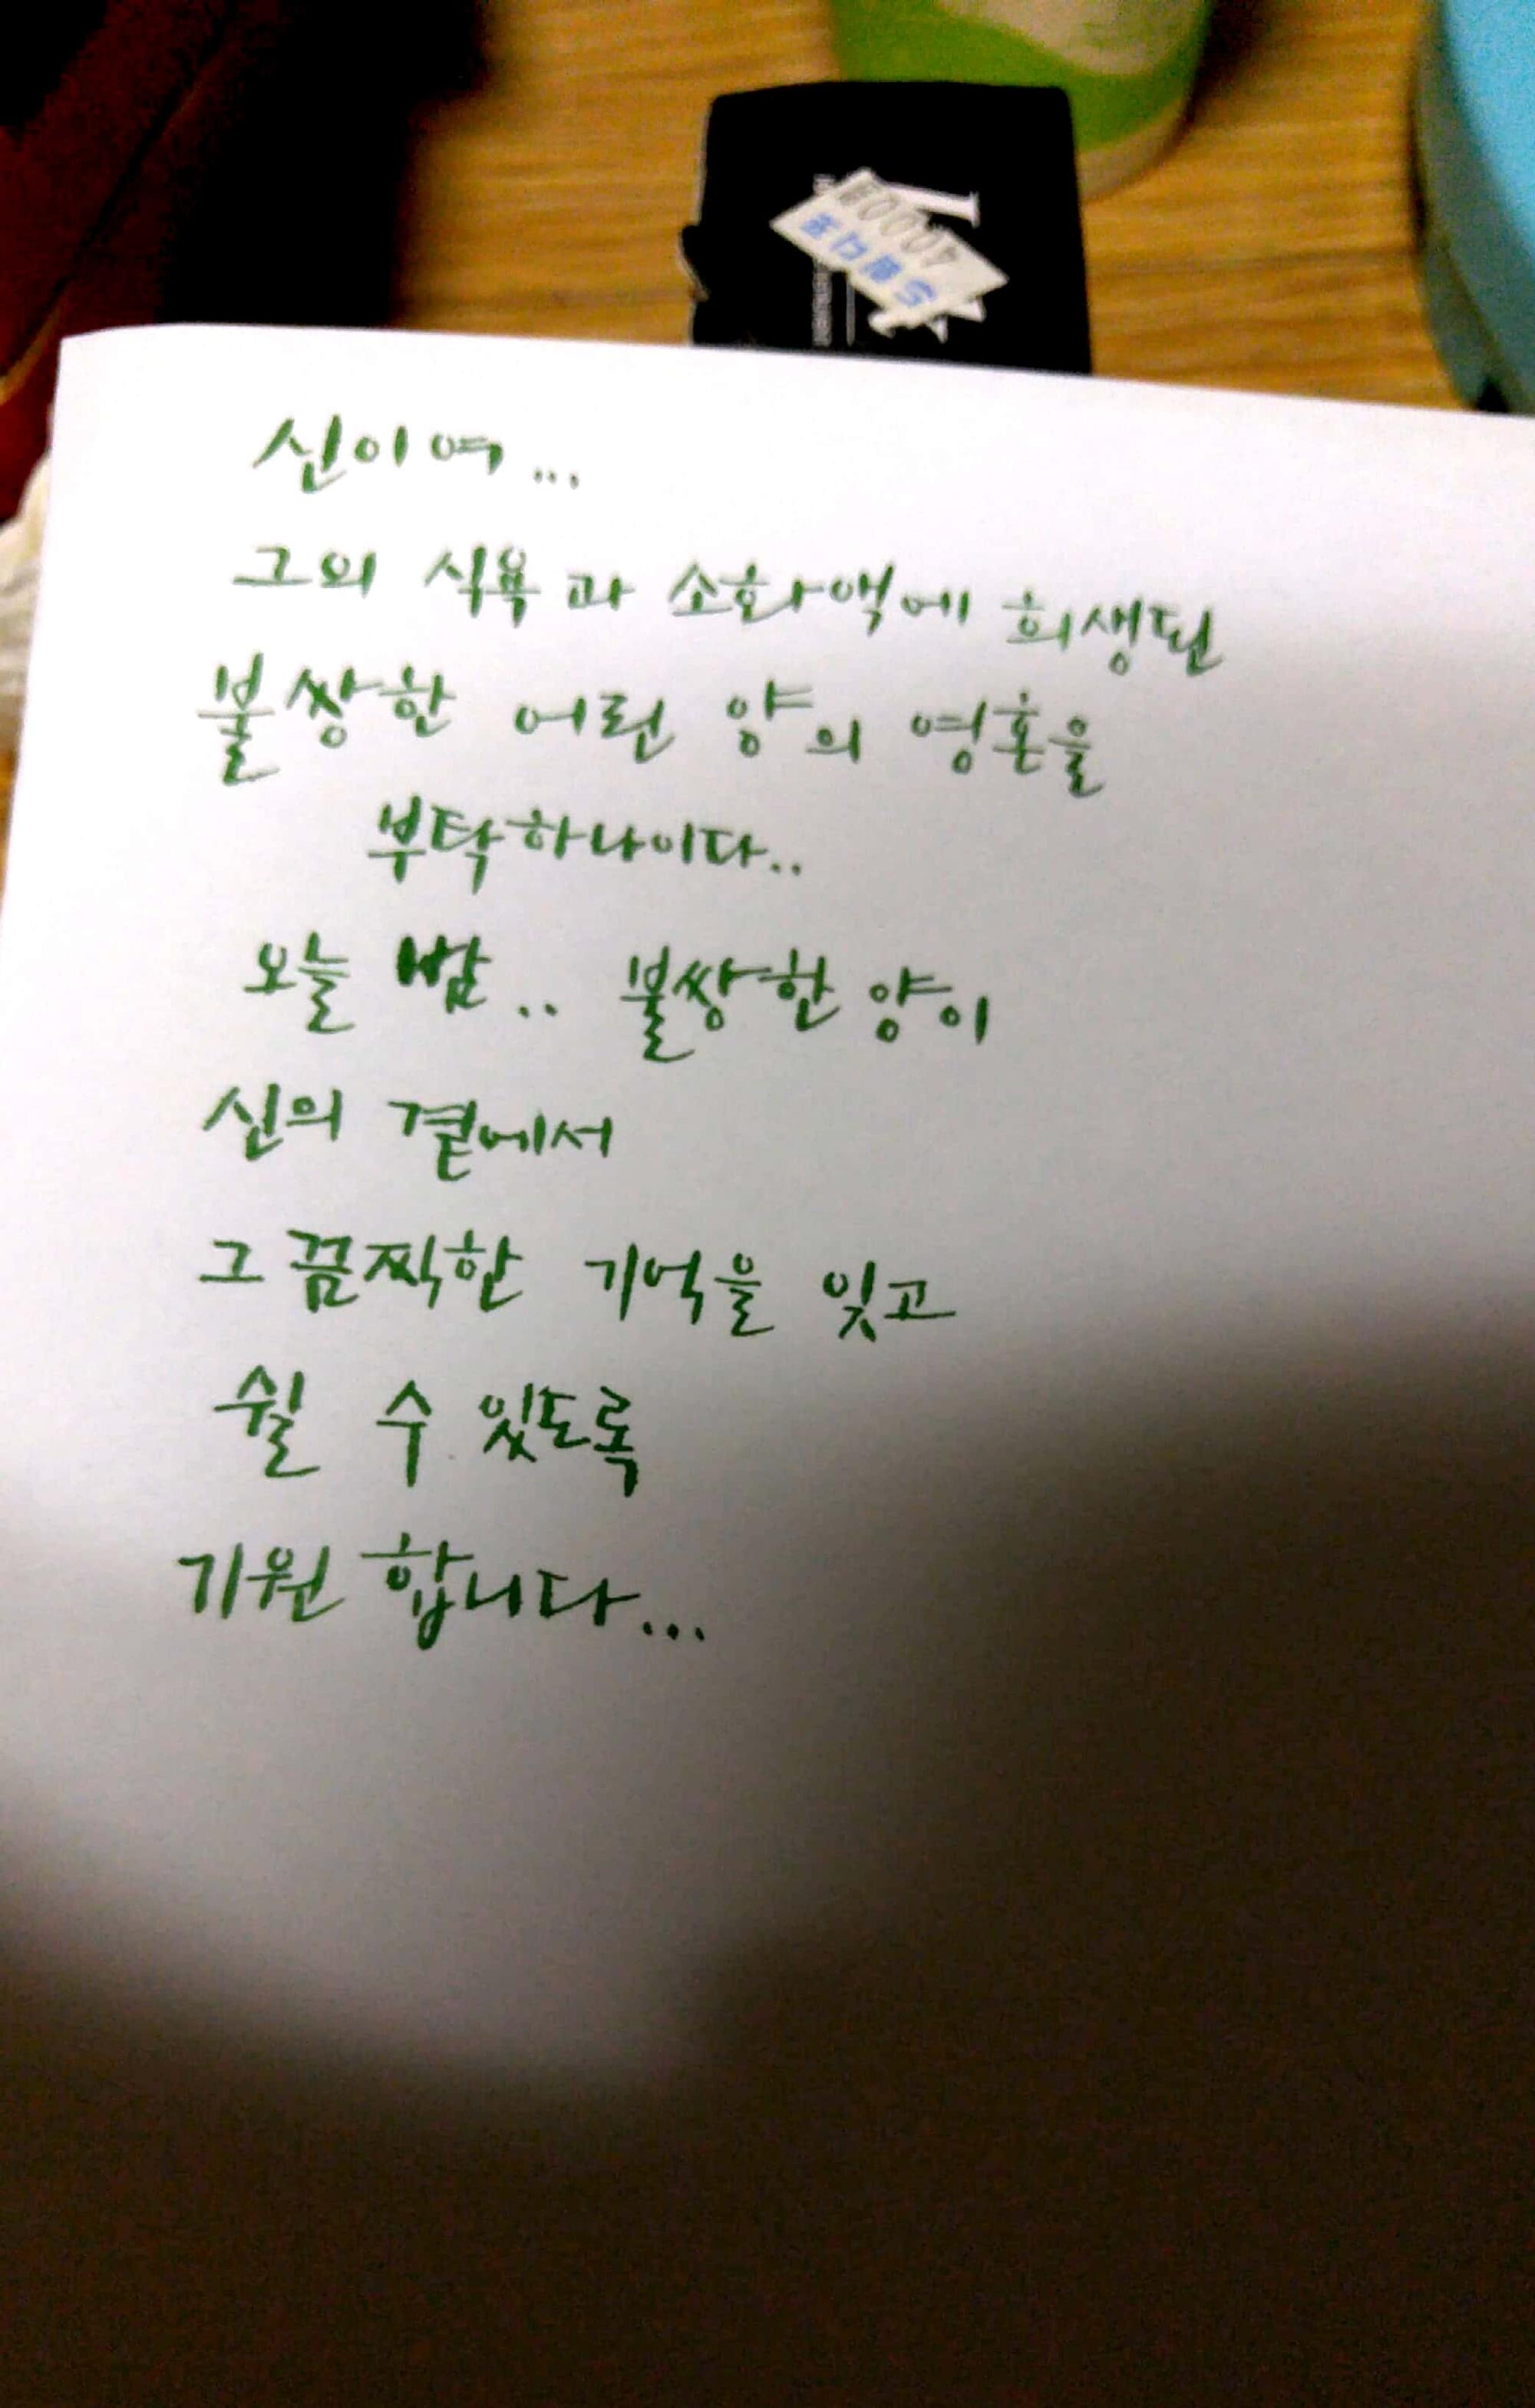 신이여...
그의 식욕과 소화액에 희생된
불쌍한 어린 양의 영혼을
부탁하나이다..
오늘 밤.. 불쌍한 양이
신의 곁에서
그 끔찍한 기억을 잊고
쉴 수 있도록
기원합니다...